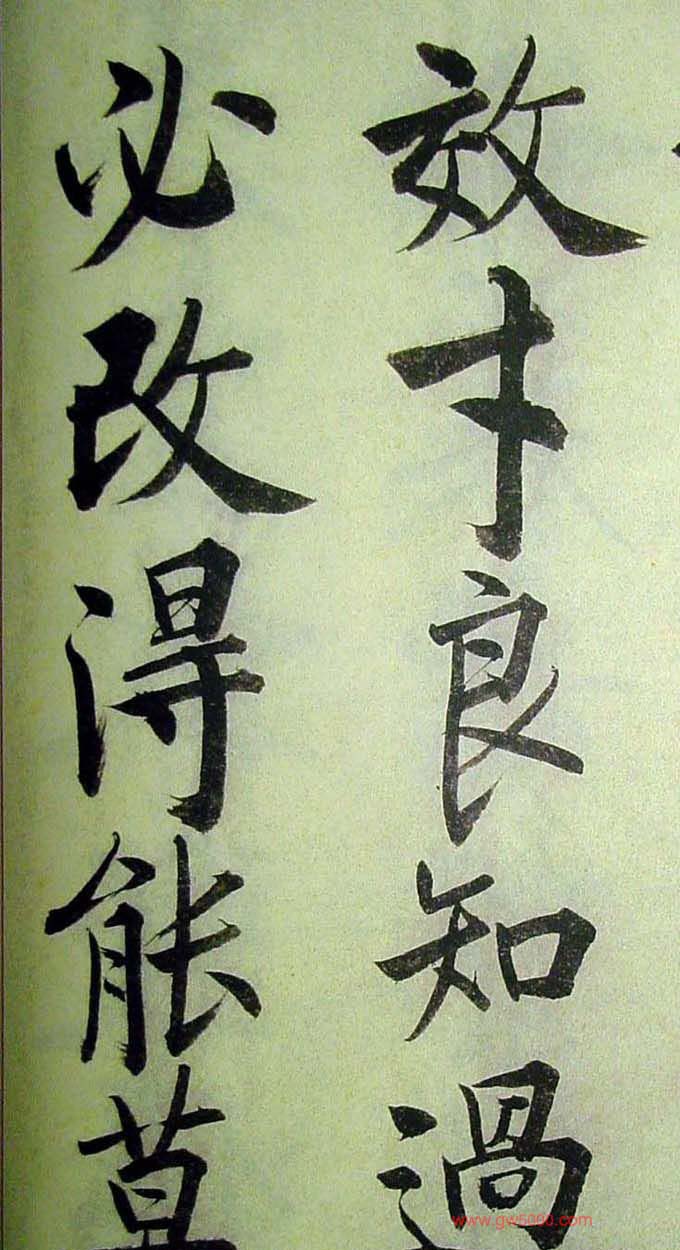 效才良知過
必改得能莫
www.gw5000.com